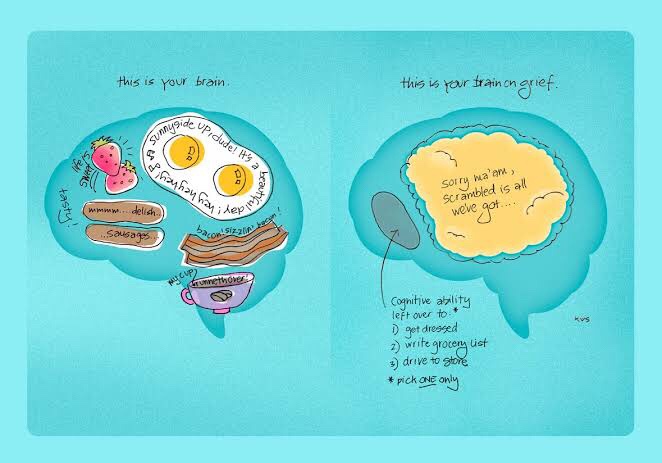 this is your brain.
life is sweet
sunnyside up, dude! It's a beautiful day! hey hey hey
tasty!
mmmm....delish..
..sausages..
bacon! sizzlin' bacon!
my cup
runneth over
this is your brain on grief.
sorry ma'am,
scrambled is all
we've got....
Cognitive ability
left over to: *
1) get dressed
2) write grocery list
3) drive to store
* pick ONE only
KVS